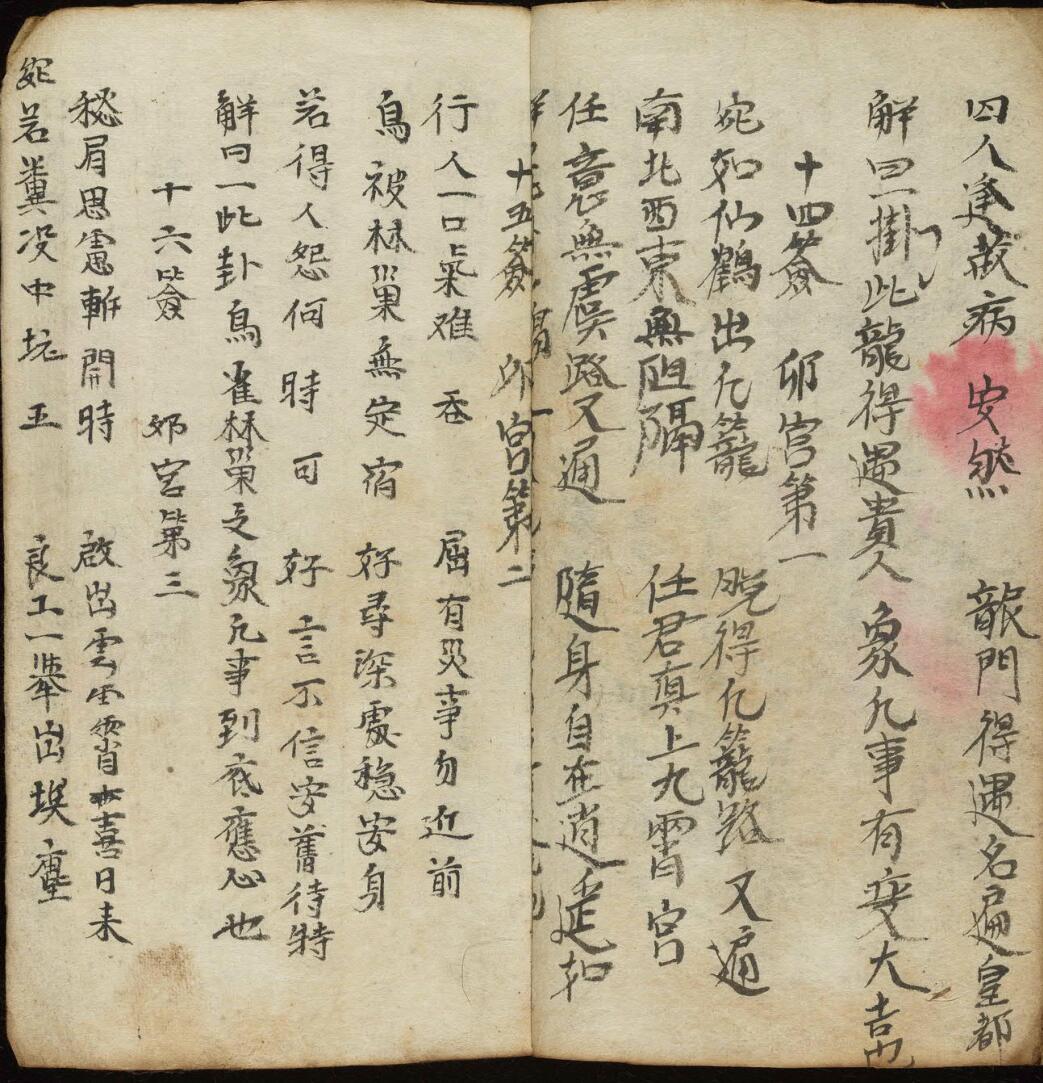 四人逢蔵病 安然 龍門得遇名遍皇都
解曰掛此龍得遇貴人 象凡事有变大吉
十四簽 卯宮第一
宛如仙鶴出凡籠 脱得凡籠路又通
南北西東無阻隔 任君真上九霄宮
任意無虞路又通 隨身自在逍遥
十五簽 卯宮第二
行人一口氣难吞 屈有災事勿近前
鳥被林巢無定宿 好尋深處穏安身
若得人怨何時可 好言不信安舊待時
解曰一此卦鳥雀林巢之象凡事到底應心也
十六簽 卯宮第三
秘眉思慮斬開時 啟出雲霄喜日未
宛若糞没中坑玉 良工一举出埃塵